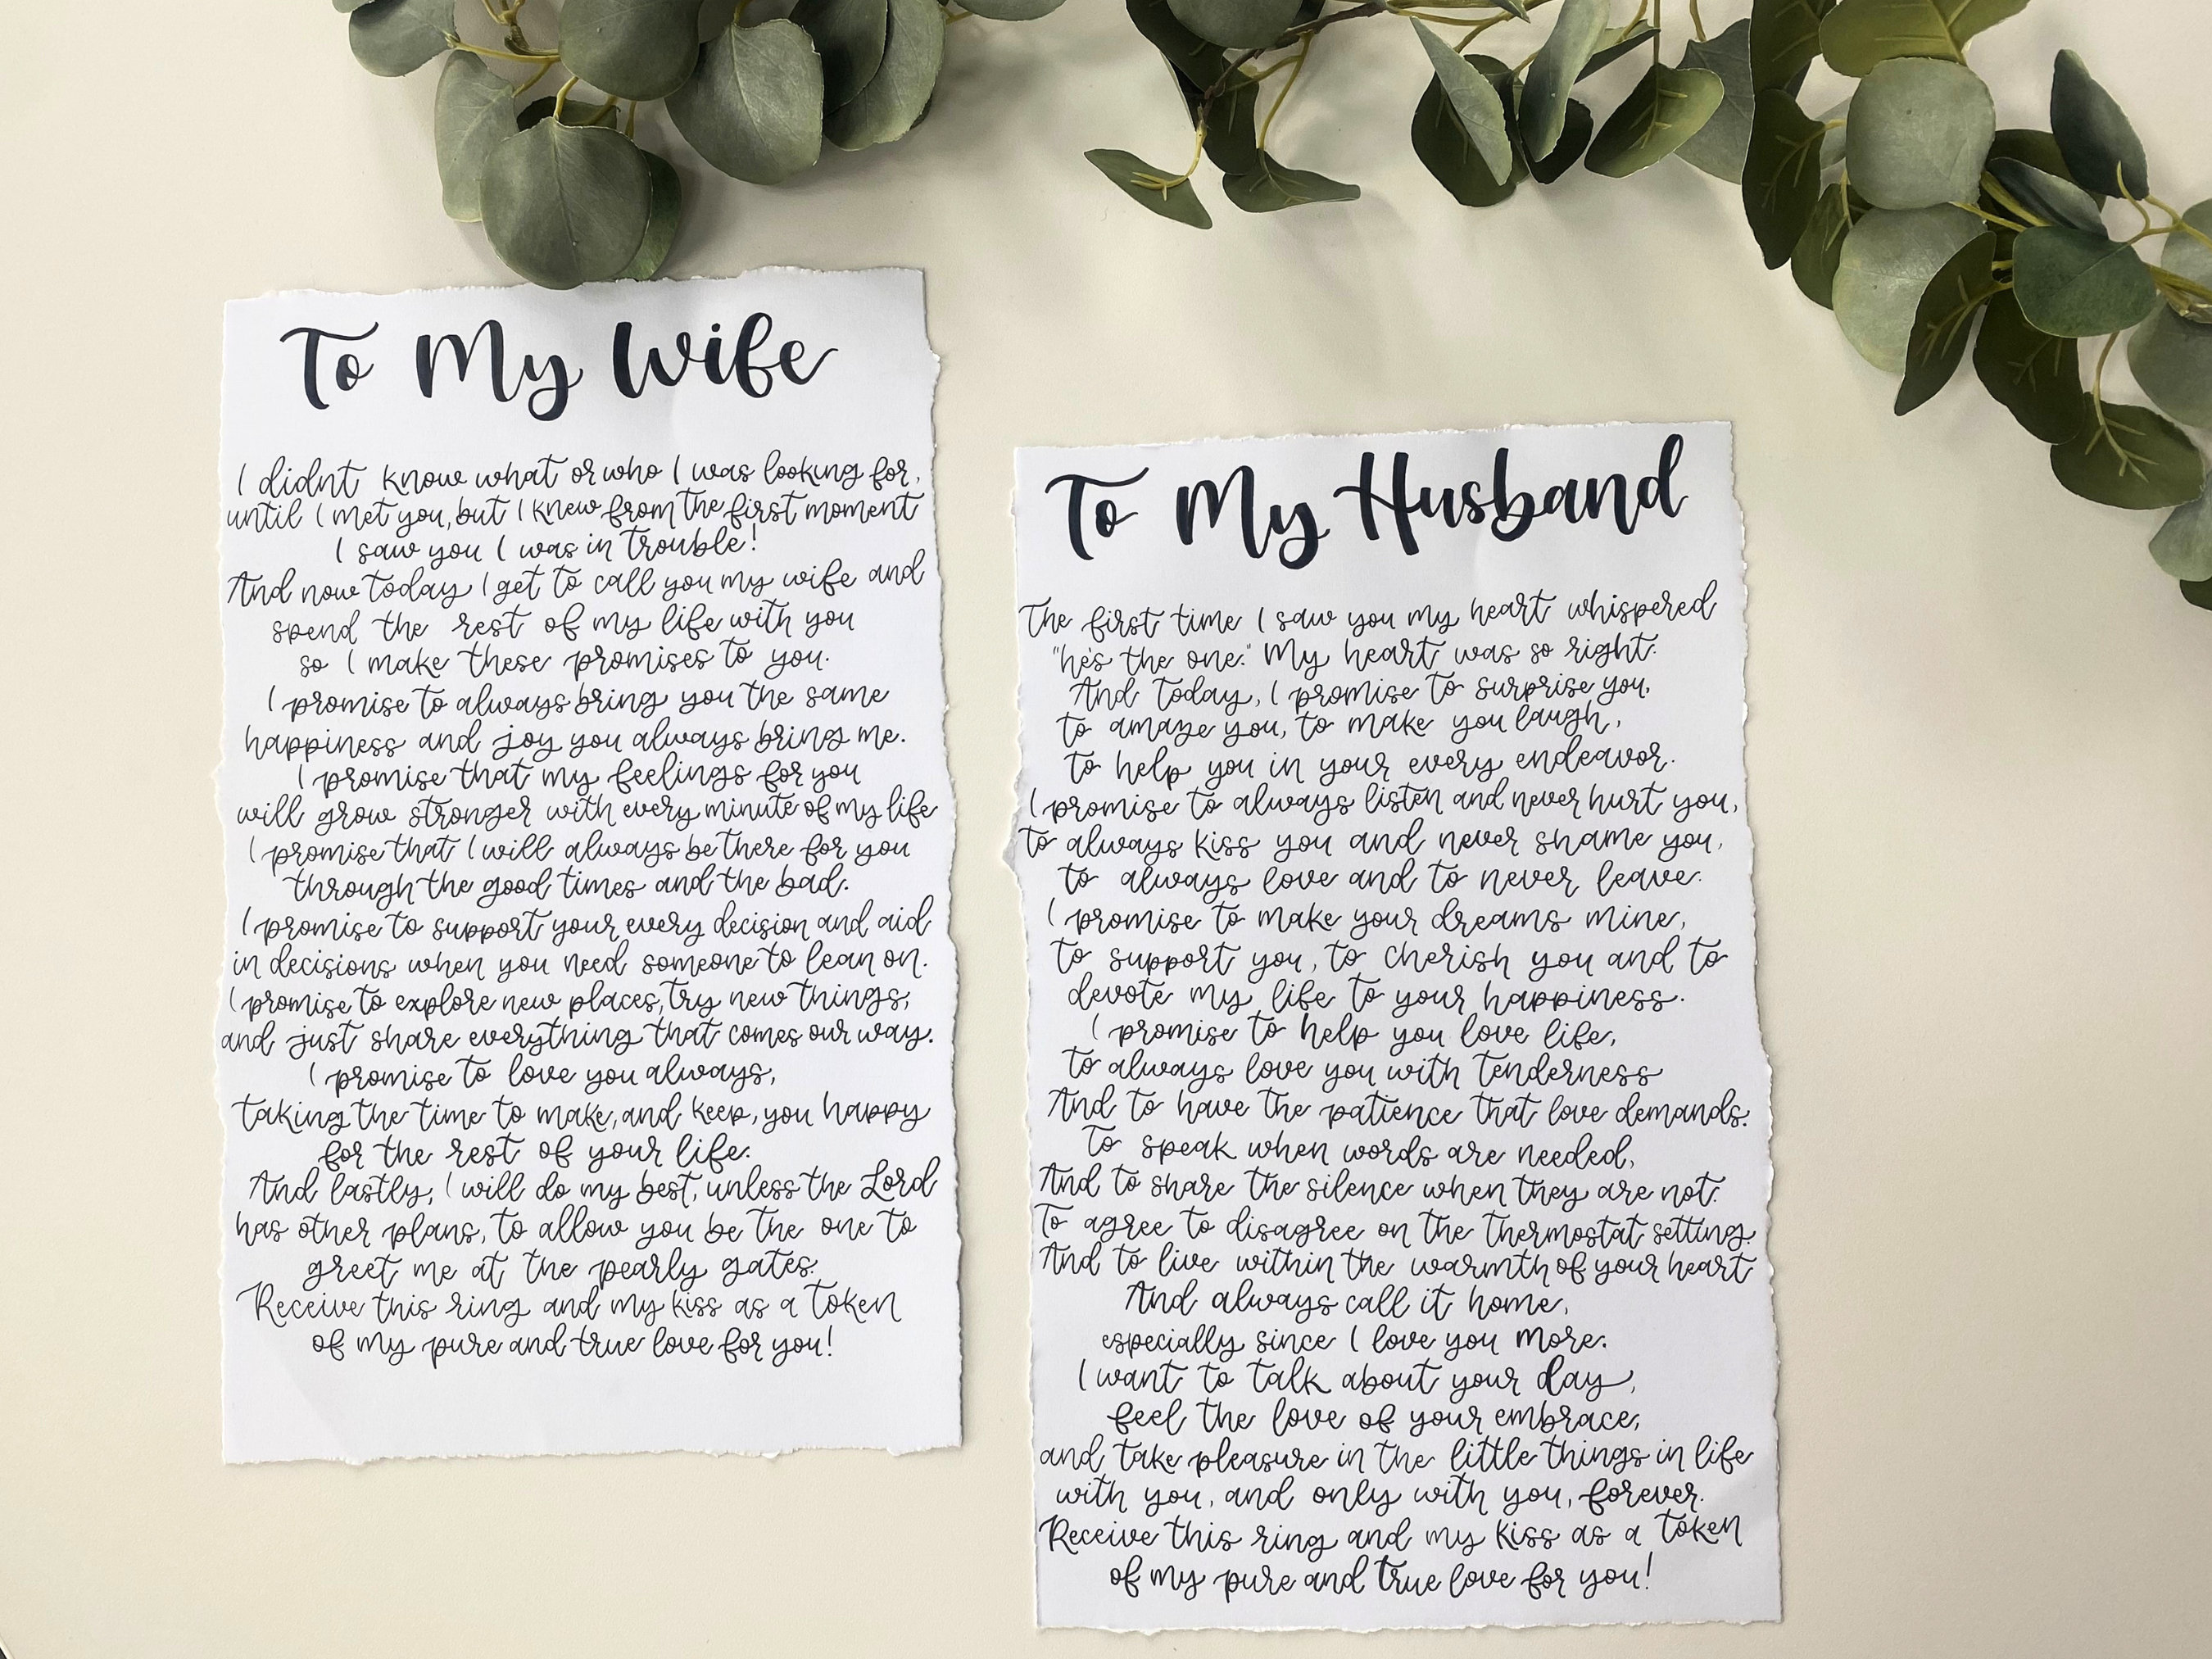 To My Wife
I didnt know what or who I was looking for,
until I met you, but I knew from the first moment
I saw you I was in trouble!
And now today I get to call you my wife and
spend the rest of my life with you
so I make these promises to you.
I promise to always bring you the same
happiness and joy you always bring me.
I promise that my feelings for you
will grow stronger with every minute of my life
I promise that I will always be there for you
through the good times and the bad.
I promise to support your every decision and aid
in decisions when you need someone to lean on.
I promise to explore new places, try new things,
and just share everything that comes our way.
I promise to love you always,
taking the time to make, and keep, you happy
for the rest of your life.
And lastly, I will do my best, unless the Lord
has other plans, to allow you be the one to
greet me at the pearly gates.
Receive this ring and my kiss as a token
of my pure and true love for you!
To My Husband
The first time I saw you my heart whispered
"he's the one." My heart was so right.
And today, I promise to surprise you,
to amaze you, to make you laugh,
to help you in your every endeavor.
I promise to always listen and never hurt you,
to always kiss you and never shame you,
to always love and to never leave.
I promise to make your dreams mine,
to support you, to cherish you and to
devote my life to your happiness.
I promise to help you love life,
to always love you with tenderness
And to have the patience that love demands.
To speak when words are needed,
And to share the silence when they are not.
To agree to disagree on the thermostat setting.
And to live within the warmth of your heart
And always call it home,
especially since I love you more.
I want to talk about your day,
feel the love of your embrace,
and take pleasure in the little things in life
with you, and only with you, forever.
Receive this ring and my kiss as a token
of my pure and true love for you!